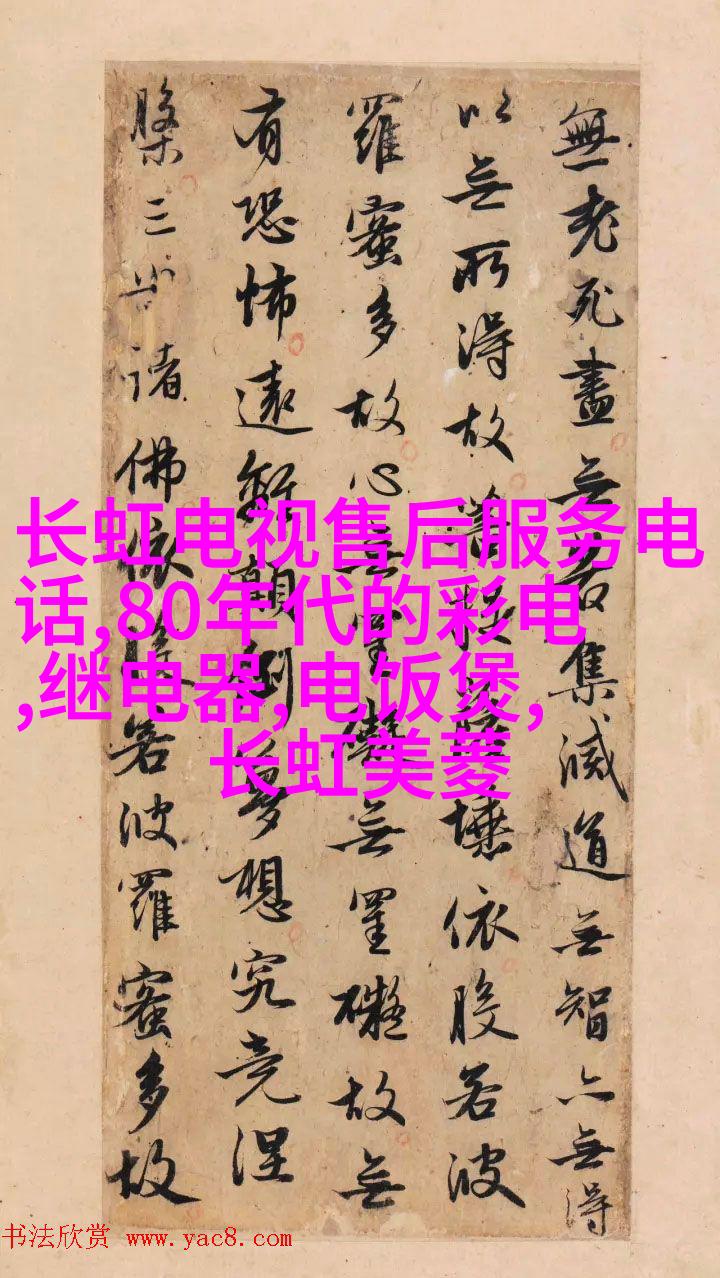 無老死盡無苦集滅道無智亦無得
以無所得故菩提薩埵依般若波
羅蜜多故心無罣礙無罣礙故無
有恐怖遠離顛倒夢想究竟涅
槃三世諸佛依般若波羅蜜多故
长虹电视售后服务电
话,80年代的彩电
,继电器,电饭煲,
长虹美菱
书法欣赏 www.yac8.com